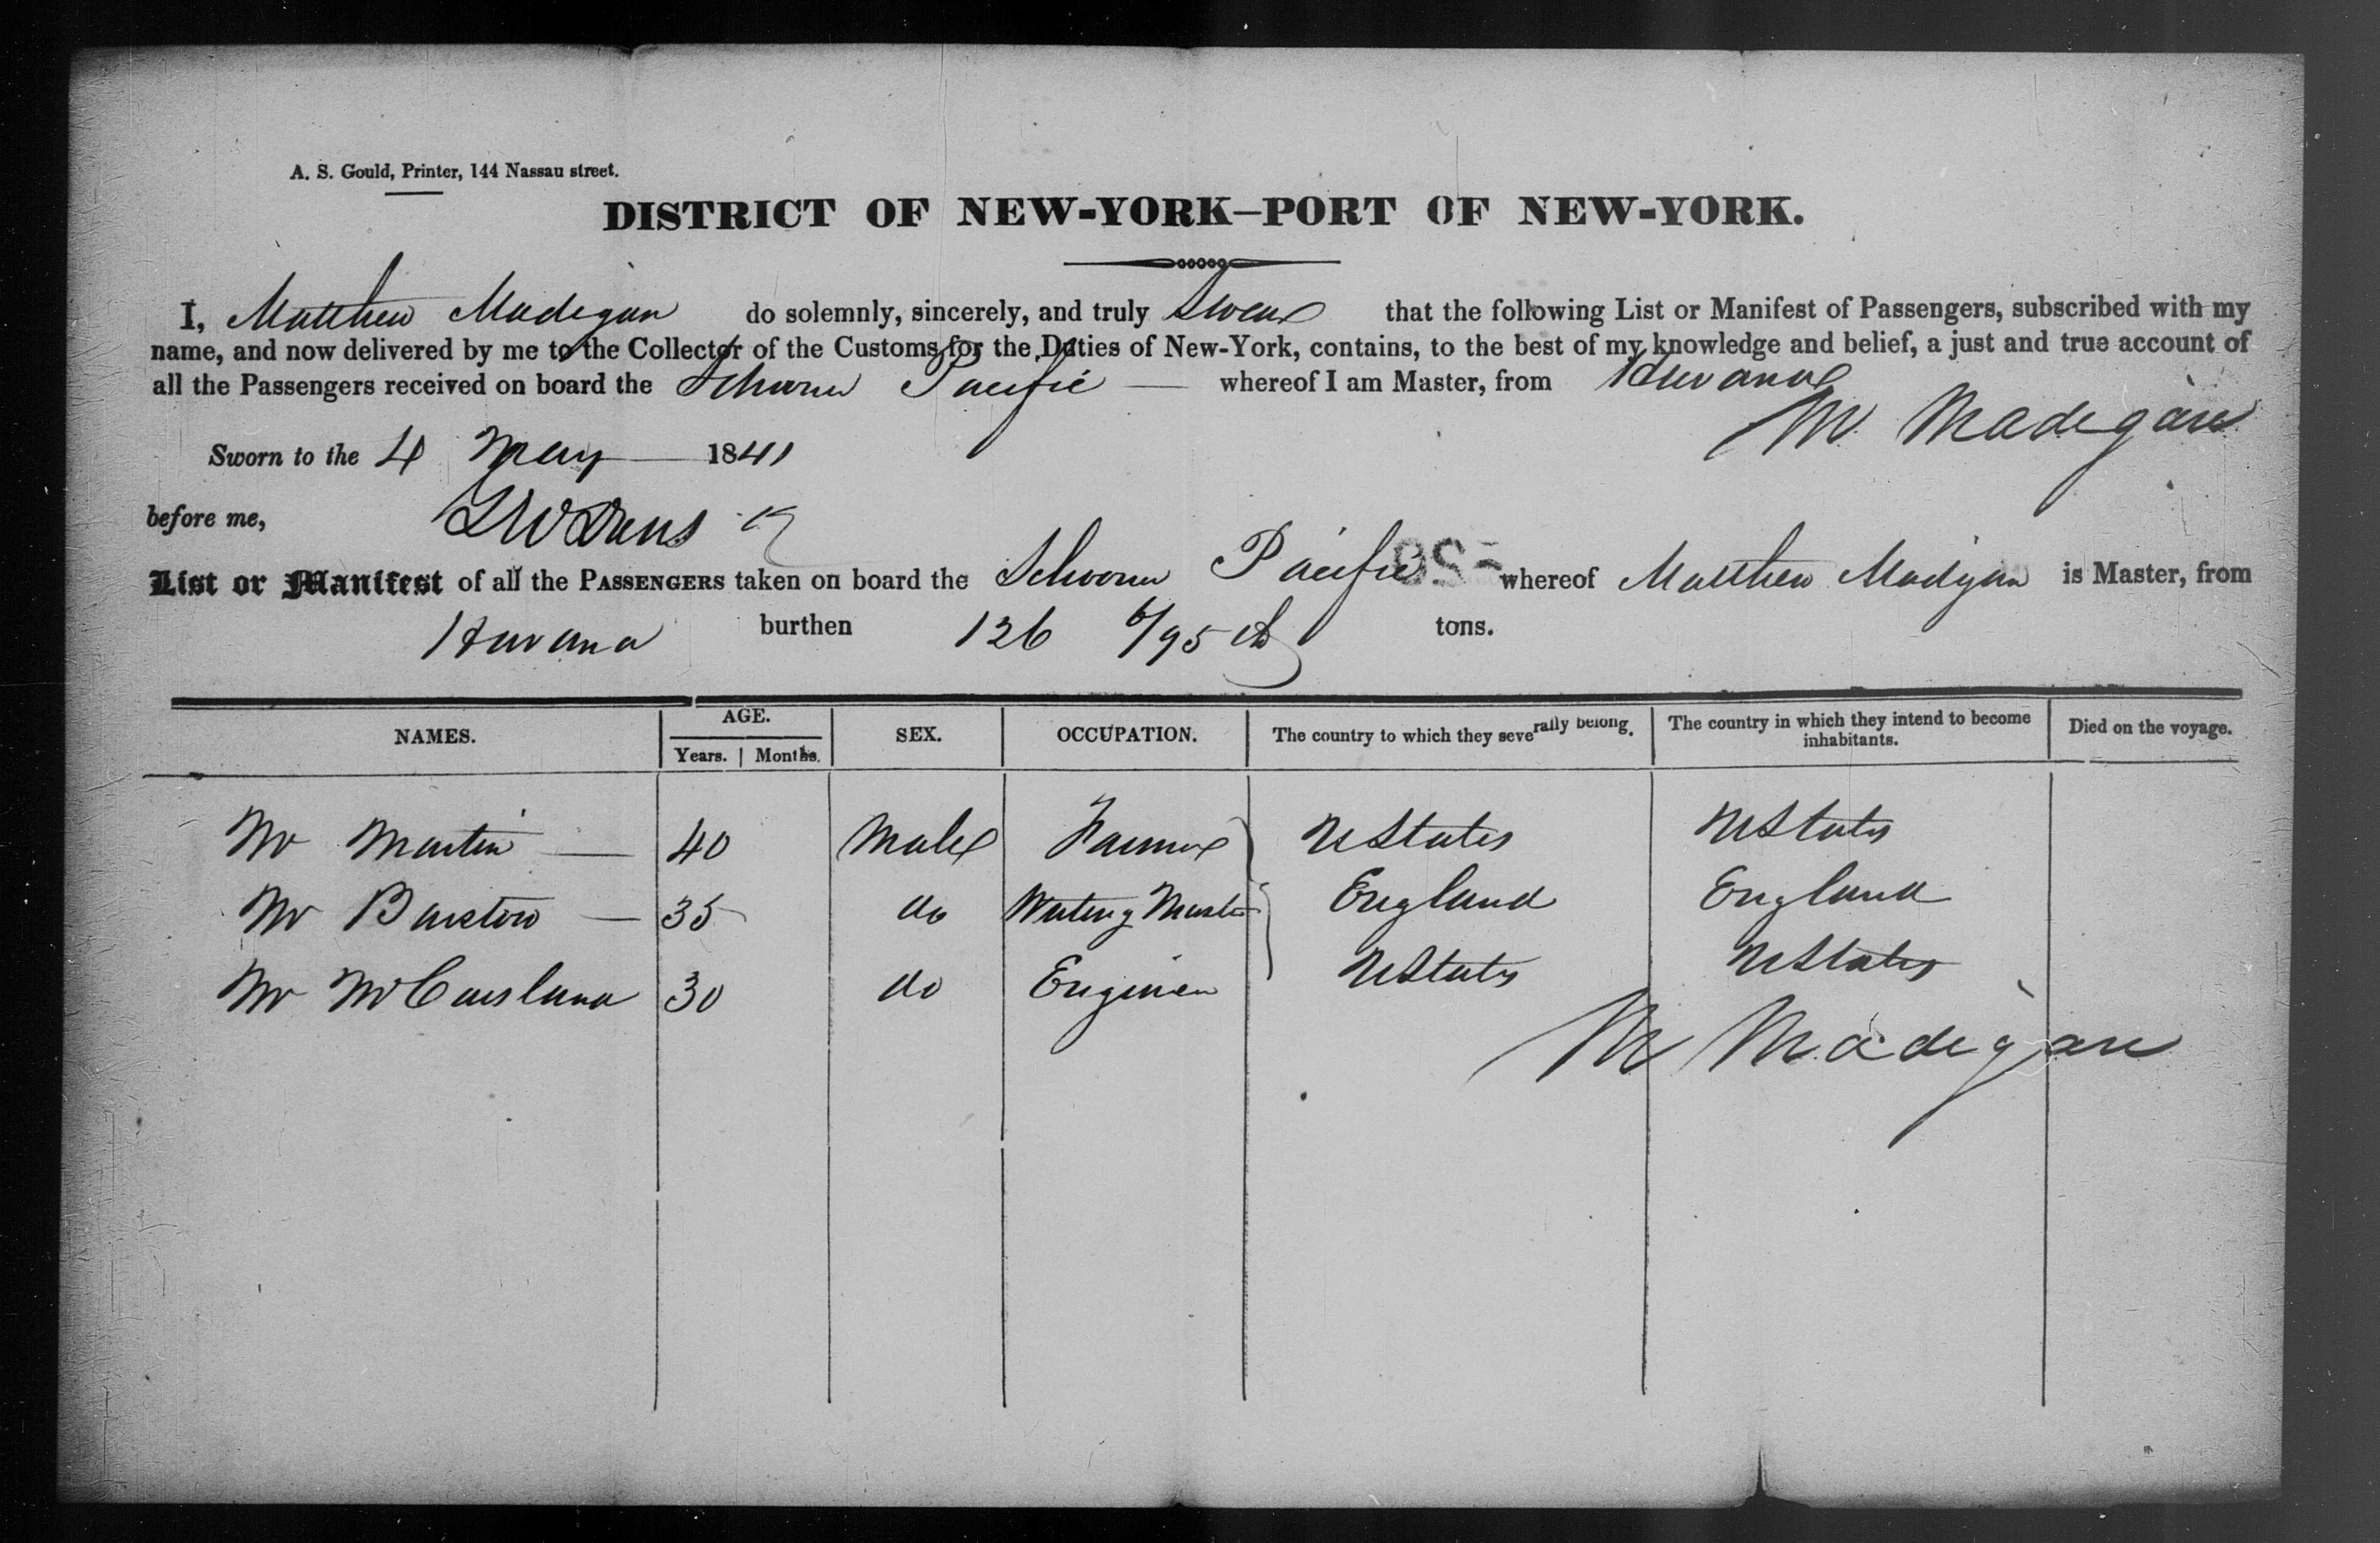 A. S. Gould, Printer, 144 Nassau street.
DISTRICT OF NEW-YORK—PORT OF NEW-YORK.
I, Matthew Madigan do solemnly, sincerely, and truly Swear that the following List or Manifest of Passengers, subscribed with my
name, and now delivered by me to the Collector of the Customs for the Duties of New-York, contains, to the best of my knowledge and belief, a just and true account of
all the Passengers received on board the Schooner Pacific — whereof I am Master, from Havana
M Madegan
Sworn to the 4 May 1841
before me,
List or Manifest of all the PASSENGERS taken on board the Schooner Pacific whereof Matthew Madigan is Master, from
Havana burthen 126 6/95 tons.
NAMES. AGE. SEX. OCCUPATION. The country to which they severally belong. The country in which they intend to become inhabitants. Died on the voyage.
Years. Months.
Mr Martin — 40 Male Farmer UStates UStates
Mr Barstow — 35 do Writing Master England England
Mr McCausland 30 do Engineer UStates UStates
M Madegan